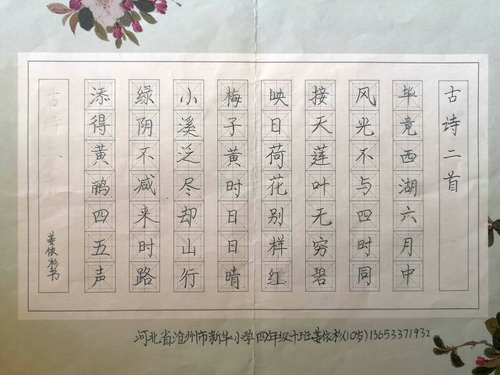 古诗二首
毕竟西湖六月中
风光不与四时同
接天莲叶无穷碧
映日荷花别样红
梅子黄时日日晴
小溪泛尽却山行
绿阴不减来时路
添得黄鹂四五声
书
河北省沧州市新华小学四年级十班 (10岁) 13653371932